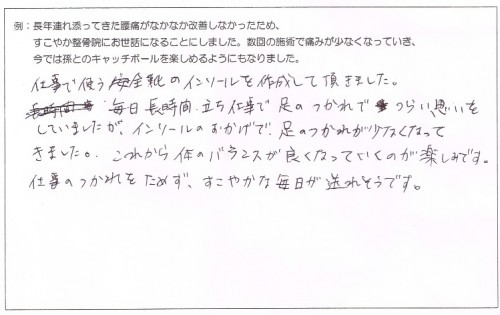 例：長年連れ添ってきた腰痛がなかなか改善しなかったため、
すこやか整骨院にお世話になることにしました。数回の施術で痛みが少なくなっていき、
今では孫とのキャッチボールを楽しめるようにもなりました。
仕事で使う安全靴のインソールを作成して頂きました。
毎日長時間立ち仕事で足のつかれでつらい思いを
していましたが、インソールのおかげで、足のつかれが少なくなって
きました。これから体のバランスが良くなっていくのが楽しみです。
仕事のつかれをためず、すこやかな毎日が送れそうです。